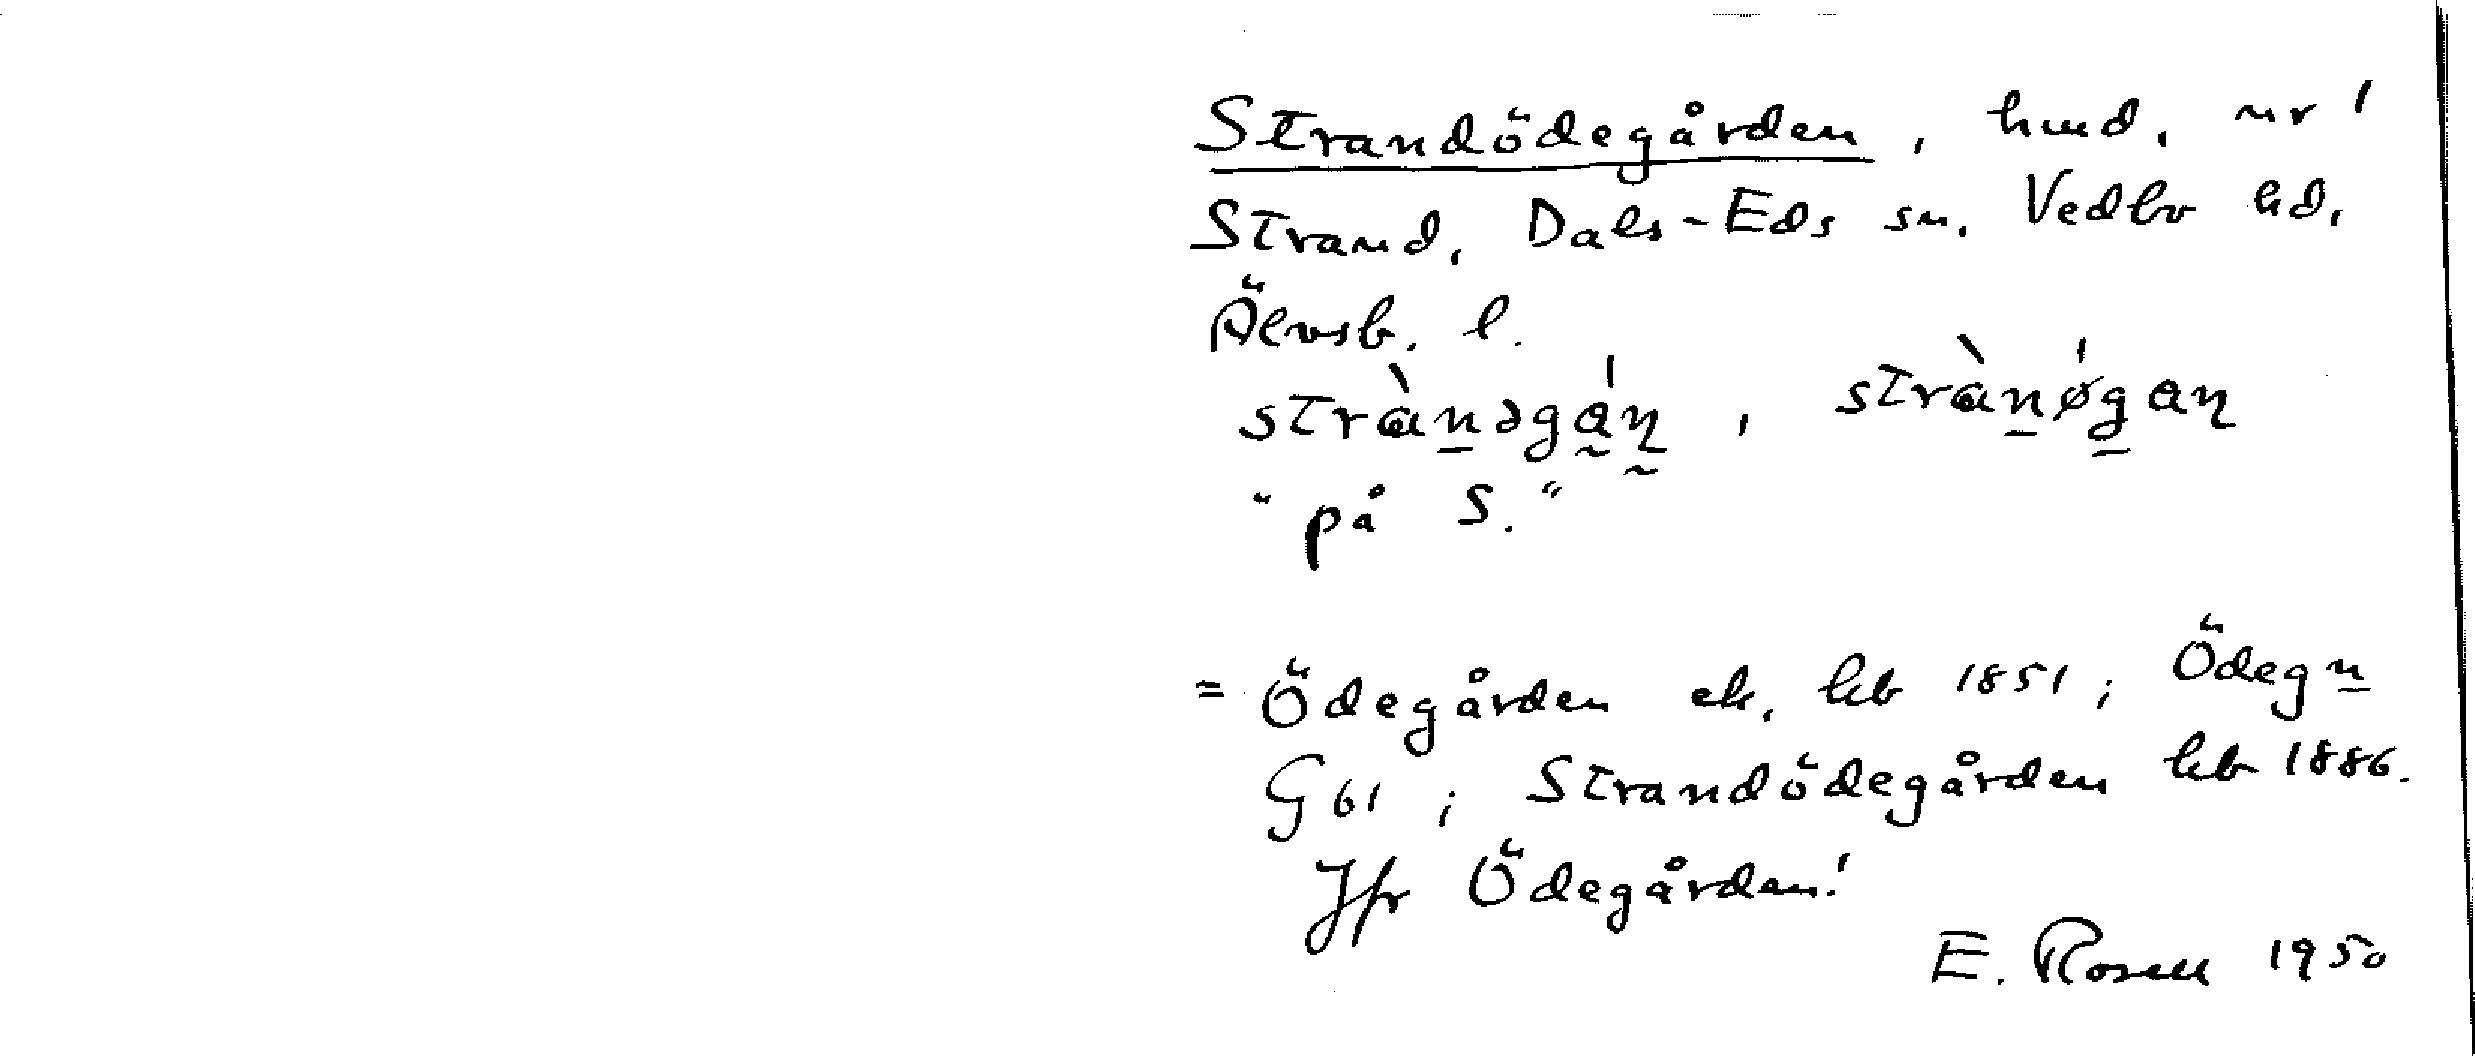 Strandödegården, hmd. nr 1
Strand, Dals-Eds sn. Vedbo hd.
Älvsb. l.
strànəgán, strànǿgan
"på S."
= Ödegården ek. kb 1851; Ödegn
G 61; Strandödegården kb 1886.
Jfr Ödegården!
E. Rosell 1950